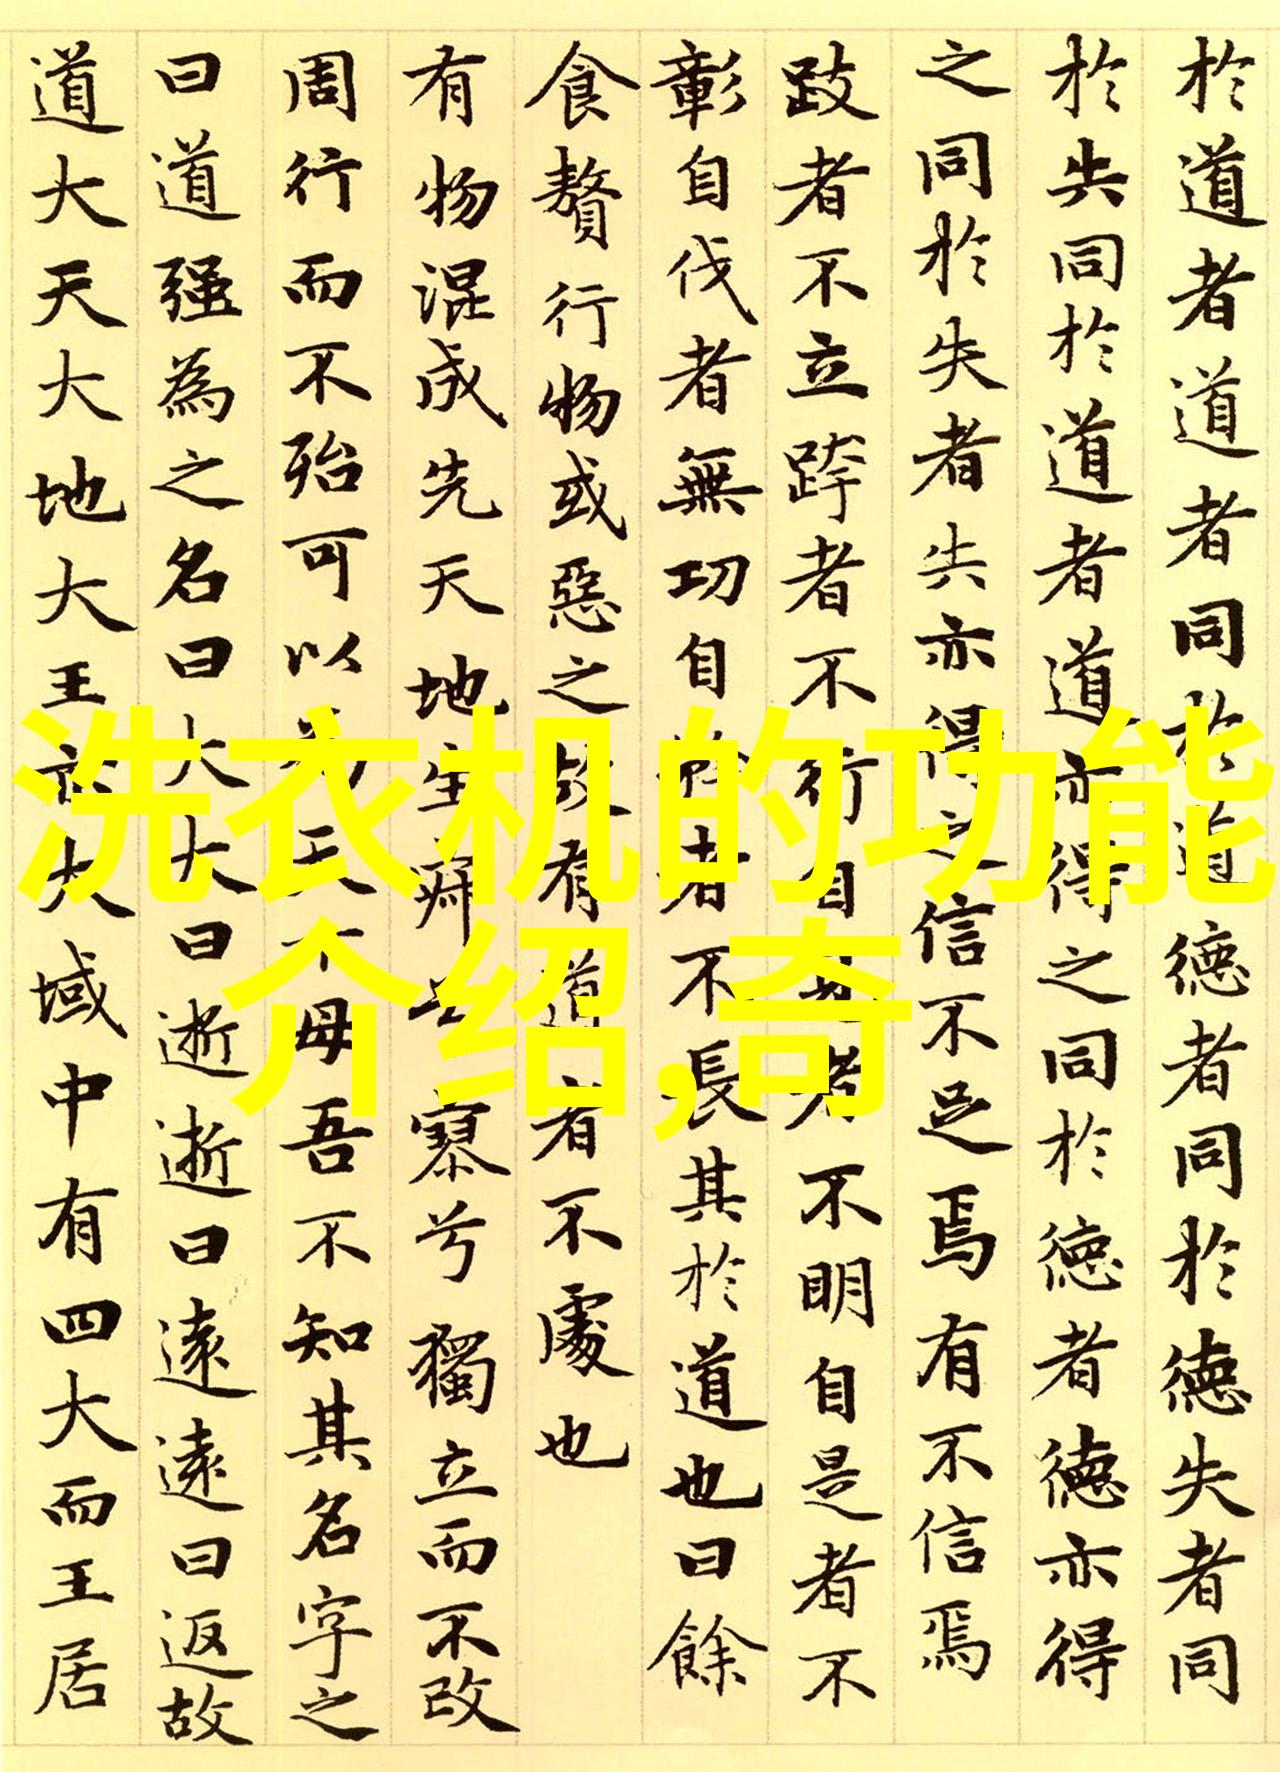 於道者道者同於道德者同於德失者同
於失同於道者道亦得之同於德者德亦得
之同於失者失亦得之信不足焉有不信焉
跂者不立跨者不行自見者不明自是者不
彰自伐者無功自矜者不長其於道也曰餘
食贅行物或惡之故有道者不處也
有物混成先天地生寂兮寥兮獨立而不改
周行而不殆可以為天下母吾不知其名字之
曰道强為之名曰大大曰逝逝曰遠遠曰返故
道大天大地大王亦大域中有四大而王居
洗衣机的功能
介绍,奇